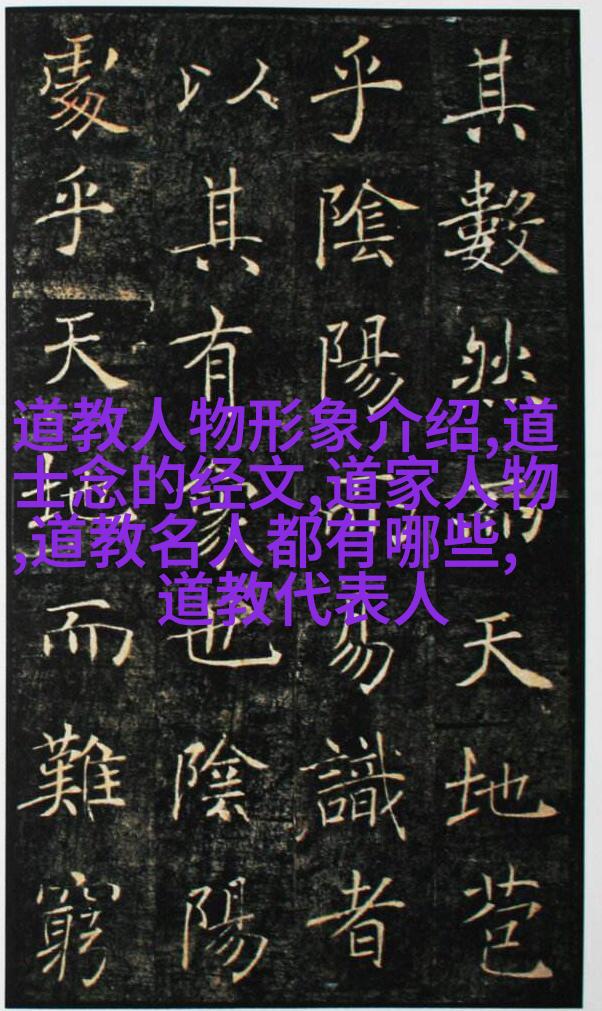 其數然而天地苞
乎陰陽而易識者
以其有象也陰陽
處乎天地而難窮
道教人物形象介绍,道
士念的经文,道家人物
,道教名人都有哪些,
道教代表人